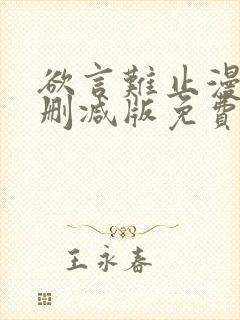 欲言難止漫
刪減版免費
王永春